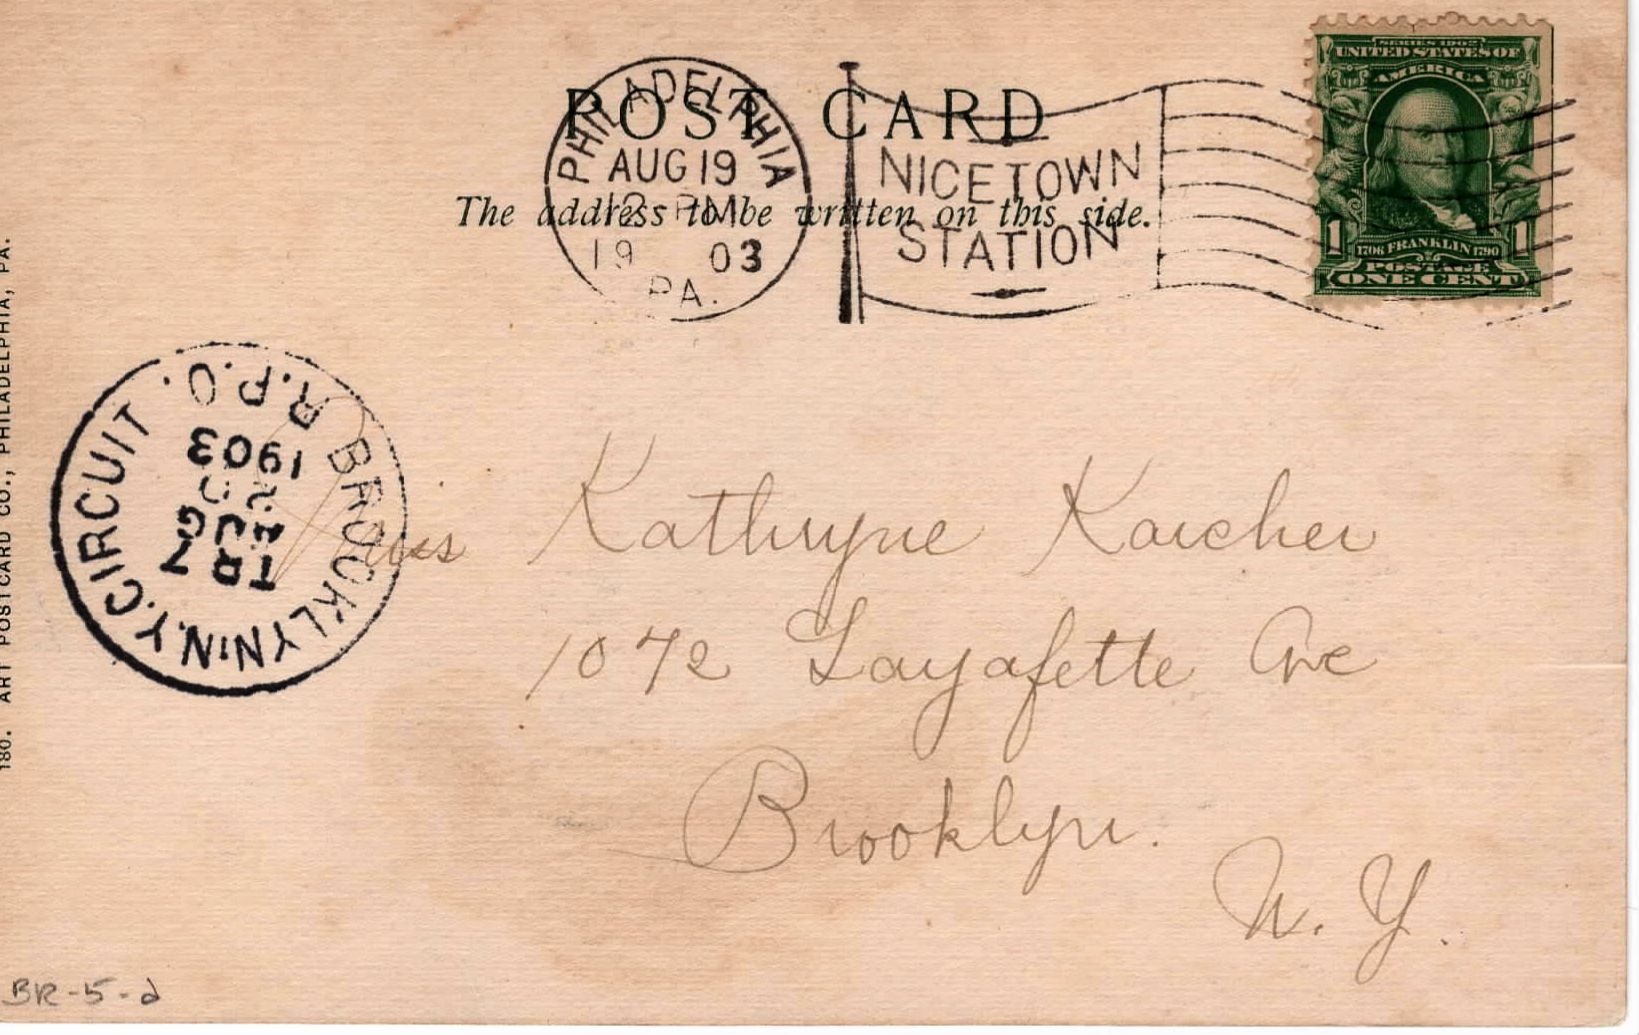 POST CARD
The address to be written on this side.
PHILADELPHIA
AUG 19
12 PM
19 03
PA.
NICETOWN
STATION
SERIES 1902
UNITED STATES OF
AMERICA
1 1706 FRANKLIN 1790 1
POSTAGE
ONE CENT
BROOKLYN N.Y. CIRCUIT.
R.P.O.
TR 7
AUG
1903
Miss Kathryne Karcher
1072 Layafette Ave
Brooklyn.
N. Y.
180. ART POSTCARD CO., PHILADELPHIA, PA.
BR-5-d